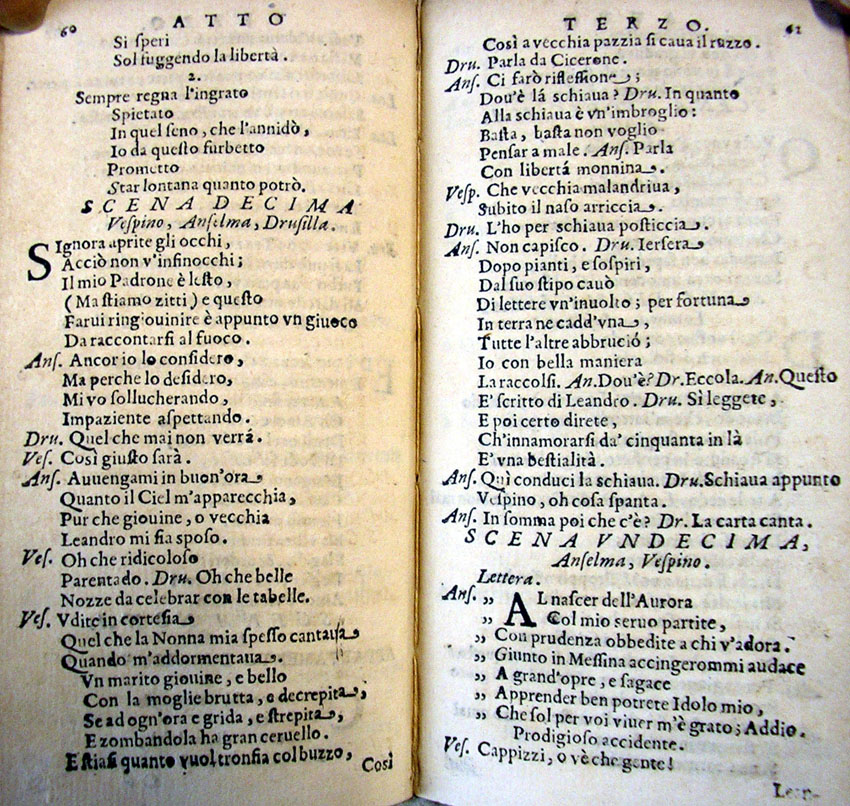 60
ATTO
Si ſperi
Sol fuggendo la libertà.
2.
Sempre regna l'ingrato
Spietato
In quel ſeno, che l'annidò,
Io da queſto furbetto
Prometto
Star lontana quanto potrò.
SCENA DECIMA
Veſpino, Anſelma, Druſilla.
SIgnora aprite gli occhi,
Acciò non v'infinocchi;
Il mio Padrone è leſto,
(Ma ſtiamo zitti) e queſto
Farui ringiouinire è appunto vn giuoco
Da raccontarſi al fuoco.
Anſ. Ancor io lo conſidero,
Ma perche lo deſidero,
Mi vo ſollucherando,
Impaziente aſpettando.
Dru. Quel che mai non verrá.
Veſ. Così giuſto ſarà.
Anſ. Auuengami in buon'ora
Quanto il Ciel m'apparecchia,
Pur che giouine, o vecchia
Leandro mi ſia ſpoſo.
Veſ. Oh che ridicoloſo
Parentado. Dru. Oh che belle
Nozze da celebrar con le tabelle.
Veſ. Vdite in corteſia
Quel che la Nonna mia ſpeſſo cantaua
Quando m'addormentaua.
Vn marito giouine, e bello
Con la moglie brutta, o decrepita,
Se ad ogn'ora e grida, e ſtrepita,
E zombandola ha gran ceruello.
E ſtiaſi quanto vuol tronfia col buzzo,
Così
TERZO.
61
Così a vecchia pazzia ſi caua il ruzzo.
Dru. Parla da Cicerone.
Anſ. Ci farò rifleſſione;
Dou'è lá schiaua? Dru. In quanto
Alla schiaua è vn'imbroglio:
Baſta, baſta non voglio
Penſar a male. Anſ. Parla
Con libertá monnina.
Veſp. Che vecchia malandriua,
Subito il naſo arriccia.
Dru. L'ho per schiaua poſticcia.
Anſ. Non capiſco. Dru. Ierſera
Dopo pianti, e ſoſpiri,
Dal ſuo ſtipo cauò
Di lettere vn'inuolto; per fortuna
In terra ne cadd'vna,
Tutte l'altre abbruciò;
Io con bella maniera
La raccolſi. An. Dou'è? Dr. Eccola. An. Queſto
E' ſcritto di Leandro. Dru. Sì leggete,
E poi certo direte,
Ch'innamorarſi da' cinquanta in là
E' vna beſtialità.
Anſ. Quì conduci la schiaua. Dru. Schiaua appunto
Veſpino, oh coſa ſpanta.
Anſ. In ſomma poi che c'è? Dr. La carta canta.
SCENA VNDECIMA,
Anſelma, Veſpino.
Lettera.
Anſ. „ AL naſcer dell'Aurora
„ Col mio seruo partite,
„ Con prudenza obbedite a chi v'adora.
„ Giunto in Meſſina accingerommi audace
„ A grand'opre, e ſagace
„ Apprender ben potrete Idolo mio,
„ Che ſol per voi viuer m'è grato; Addio.
Prodigioſo accidente.
Veſ. Cappizzi, o vè che gente!